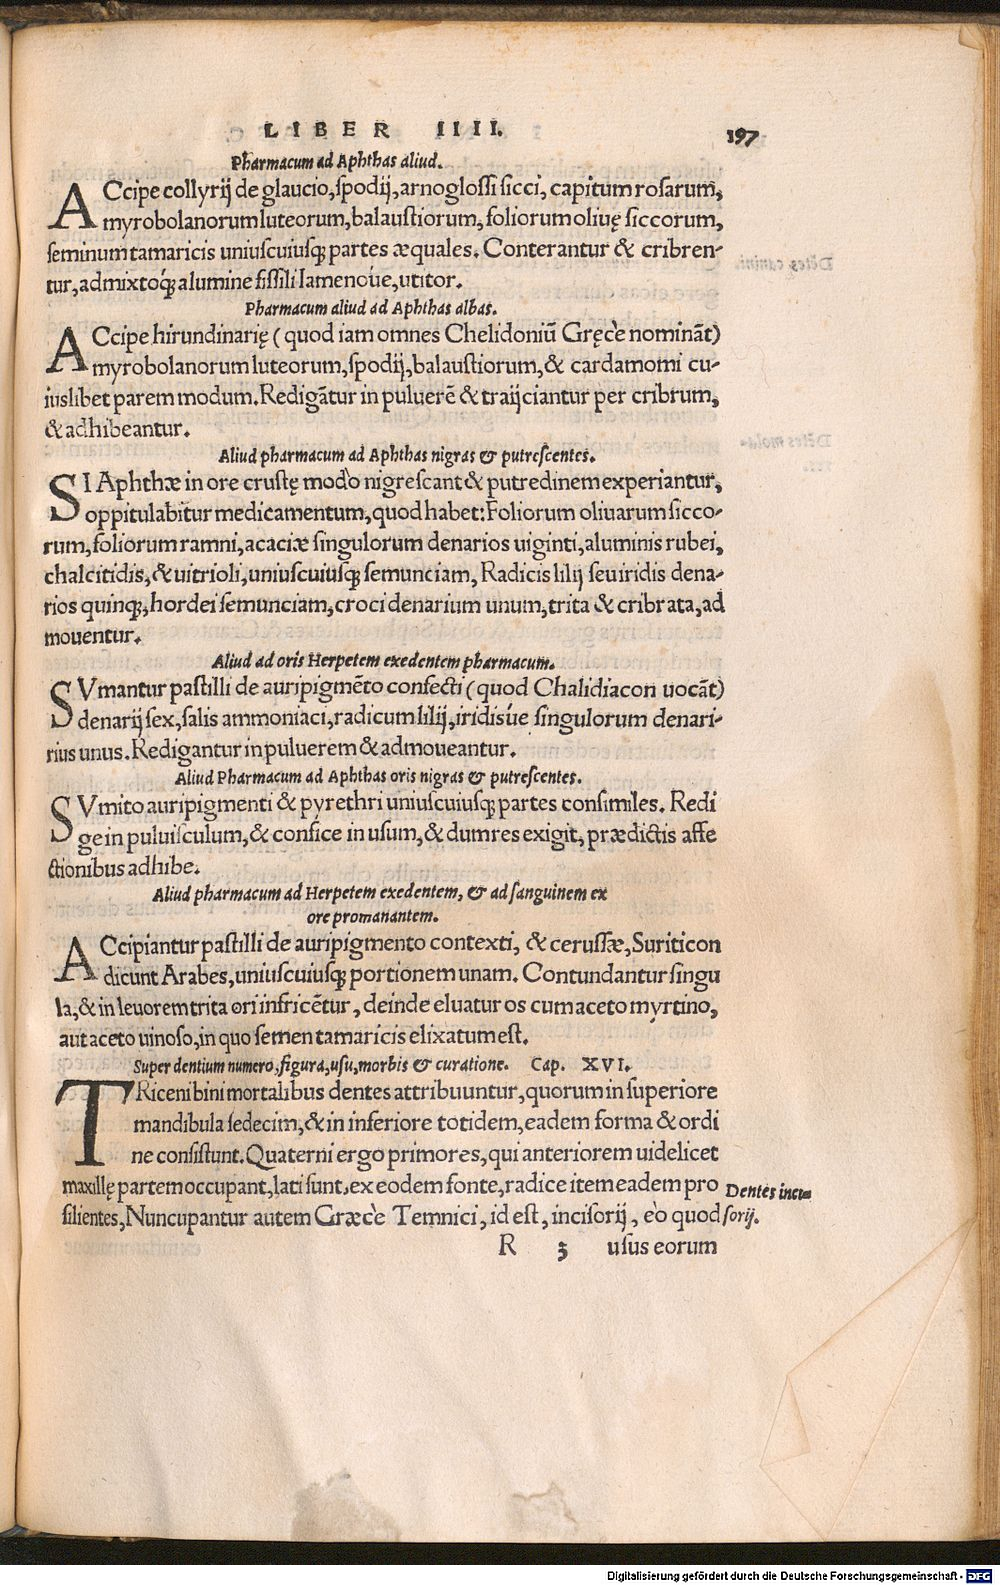 LIBER IIII. 197
Pharmacum ad Aphthas aliud.
ACcipe collyrij de glaucio, spodij, arnoglossi sicci, capitum rosarum,
myrobolanorum luteorum, balaustiorum, foliorum oliuę siccorum,
seminum tamaricis uniuscuiusq; partes æquales. Conterantur & cribren-
tur, admixtoq́; alumine fissili lamenoúe, utitor.
Pharmacum aliud ad Aphthas albas.
ACcipe hirundinarię (quod iam omnes Chelidoniũ Gręcè nominãt)
myrobolanorum luteorum, spodij, balaustiorum, & cardamomi cu-
iuslibet parem modum. Redigãtur in puluerẽ & traijciantur per cribrum,
& adhibeantur.
Aliud pharmacum ad Aphthas nigras & putrescentes.
SI Aphthæ in ore crustę modò nigrescant & putredinem experiantur,
oppitulabitur medicamentum, quod habet: Foliorum oliuarum sicco-
rum, foliorum ramni, acaciæ singulorum denarios uiginti, aluminis rubei,
chalcitidis, & uitrioli, uniuscuiusq; semunciam, Radicis lilij seu iridis dena-
rios quinq;, hordei semunciam, croci denarium unum, trita & cribrata, ad
mouentur.
Aliud ad oris Herpetem exedentem pharmacum.
SVmantur pastilli de auripigmẽto confecti (quod Chalidiacon uocãt)
denarij sex, salis ammoniaci, radicum lilij, iridisúe singulorum denari-
rius unus. Redigantur in puluerem & admoueantur.
Aliud Pharmacum ad Aphthas oris nigras & putrescentes.
SVmito auripigmenti & pyrethri uniuscuiusq; partes consimiles. Redi
ge in puluisculum, & confice in usum, & dum res exigit, prædictis affe
ctionibus adhibe.
Aliud pharmacum ad Herpetem exedentem, & ad sanguinem ex
ore promanantem.
ACcipiantur pastilli de auripigmento contexti, & cerussæ, Suriticon
dicunt Arabes, uniuscuiusq; portionem unam. Contundantur singu
la, & in leuorem trita ori infricẽtur, deinde eluatur os cum aceto myrtino,
aut aceto uinoso, in quo semen tamaricis elixatum est.
Super dentium numero, figura, usu, morbis & curatione. Cap. XVI.
TRiceni bini mortalibus dentes attribuuntur, quorum in superiore
mandibula sedecim, & in inferiore totidem, eadem forma & ordi
ne consistunt. Quaterni ergo primores, qui anteriorem uidelicet
maxillę partem occupant, lati sunt, ex eodem fonte, radice item eadem pro
silientes, Nuncupantur autem Græcè Temnici, id est, incisorij, eò quod
Dentes inci=
sorij.
R 3 usus eorum
Digitalisierung gefördert durch die Deutsche Forschungsgemeinschaft - DFG